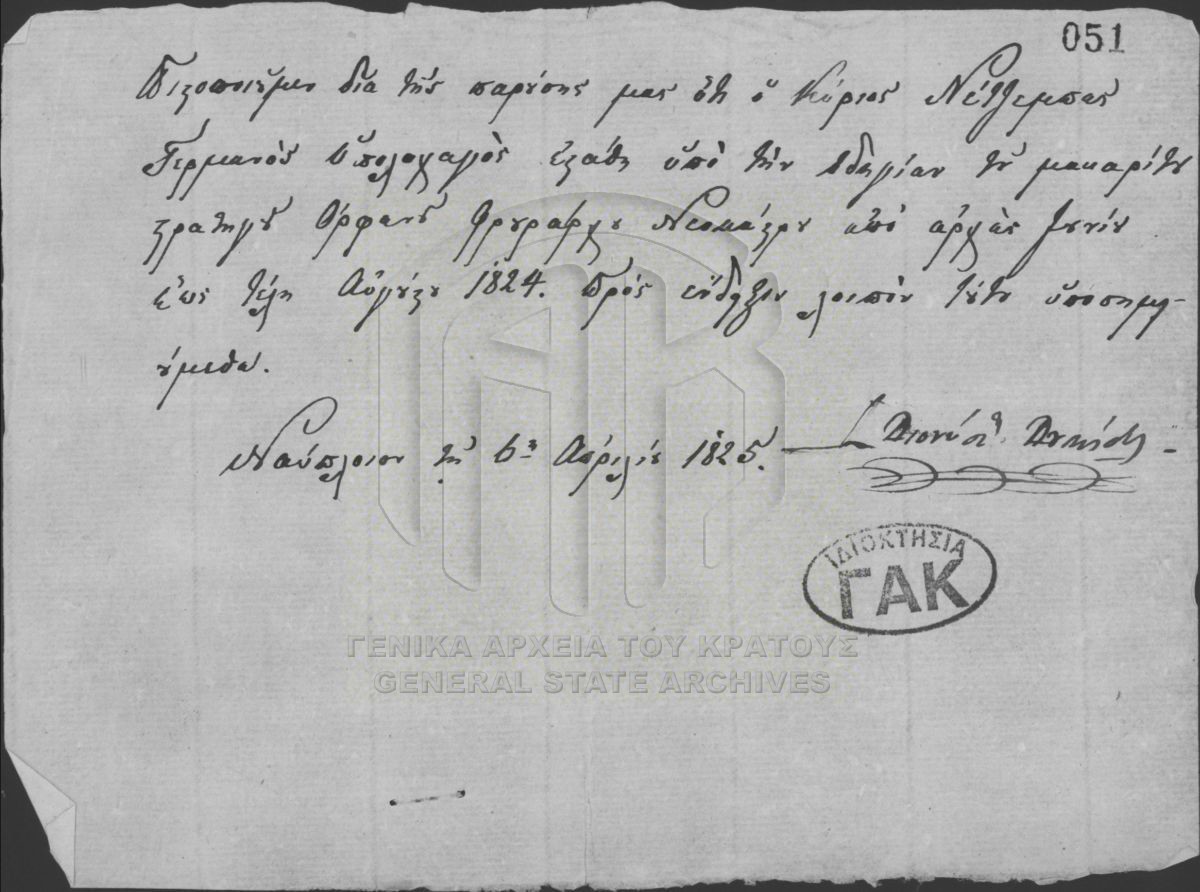 051
Πιστοποιοῦμεν διὰ τῆς παρούσης μας ὅτι ὁ Κύριος Νέτζεμπας
Γερμανὸς ὑπολοχαγὸς ἐστάθη ὑπὸ τὴν ὁδηγίαν τοῦ μακαρίτου
στρατηγοῦ Ὀρφανοῦ φρουράρχου Νεοκάστρου ἀπὸ ἀρχὰς Ἰουνίου
ἕως τέλη Αὐγούστου 1824. Πρὸς ἔνδειξιν λοιπὸν τούτου ὑποσημει-
ούμεθα.
Ναύπλοιον τῇ 6 Ἀπριλίου 1825.
Διονύσι
ΙΔΙΟΚΤΗΣΙΑ
ΓΑΚ
ΓΕΝΙΚΑ ΑΡΧΕΙΑ ΤΟΥ ΚΡΑΤΟΥΣ
GENERAL STATE ARCHIVES